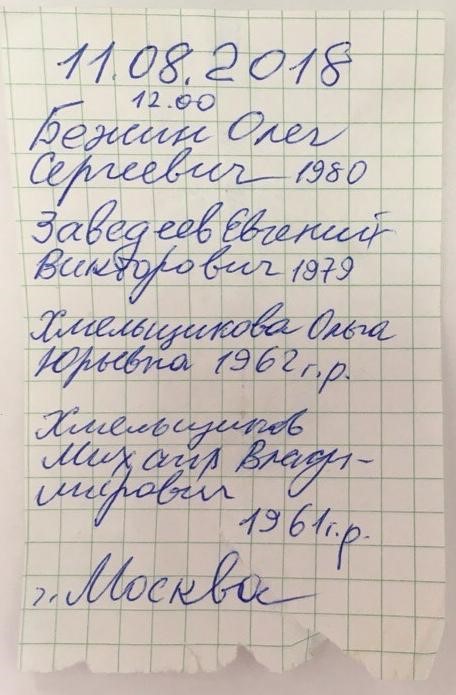 11.08.2018
12.00
Бежин Олег
Сергеевич 1980
Заведеев Евгений
Викторович 1979
Хмельщикова Ольга
Юрьевна 1962 г.р.
Хмельщиков
Михаил Влади-
мирович
1961 г.р.
г. Москва